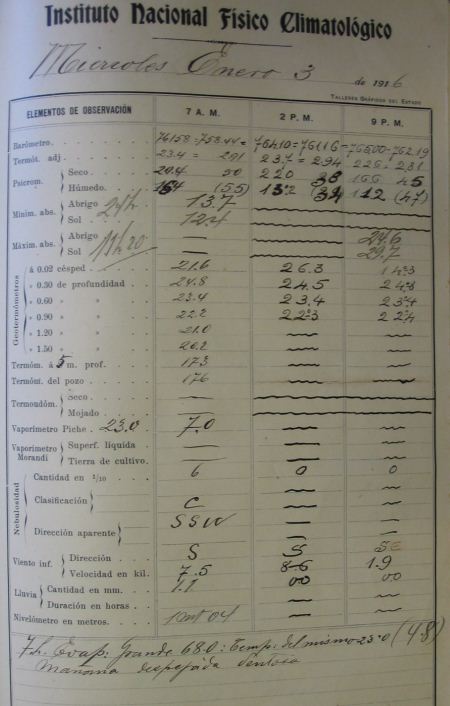 Instituto Nacional Físico Climatológico
Miércoles Enero 3 de 1916
TALLERES GRÁFICOS DEL ESTADO
ELEMENTOS DE OBSERVACIÓN 7 A. M. 2 P. M. 9 P. M.
Barómetro 761.58 = 758.44 = 764.10 = 761.16 = 765.00 = 762.19
Termót. adj 23.4 = 291 23.7 = 294 22.6 = 281
Psicrom. Seco 20.4 50 22.0 38 16.6 45
Húmedo. (55) 13.2 11.2 (47)
Mínim. abs. Abrigo 24h 13.7
Sol 12.4
Máxim. abs. Abrigo 24.6
Sol 29.7
Geotermómetros
á 0.02 césped 21.6 26.3 14.3
» 0.30 de profundidad 24.8 24.5 24.8
» 0.60 » » 23.4 23.4 23.4
» 0.90 » » 22.2 22.3 22.4
» 1.20 » » 21.0
» 1.50 » » 20.2
Termóm. á 5 m. prof. 17.3
Termóm. del pozo 17.6
Termoudóm. Seco
Mojado
Vaporímetro Piche 23.0 7.0
Vaporímetro Morandi Superf. líquida
Tierra de cultivo.
Nebulosidad
Cantidad en 1/10 6 0 0
Clasificación C
Dirección aparente SSW
Viento inf. Dirección S S SE
Velocidad en kil. 7.5 8.6 1.9
Lluvia Cantidad en mm. 1.1 00 00
Duración en horas
Nivelómetro en metros. 1 mt 04
7 h. Evap: Grande 68.0: Temp: del mismo 23.0 (4.8)
Mañana despejada